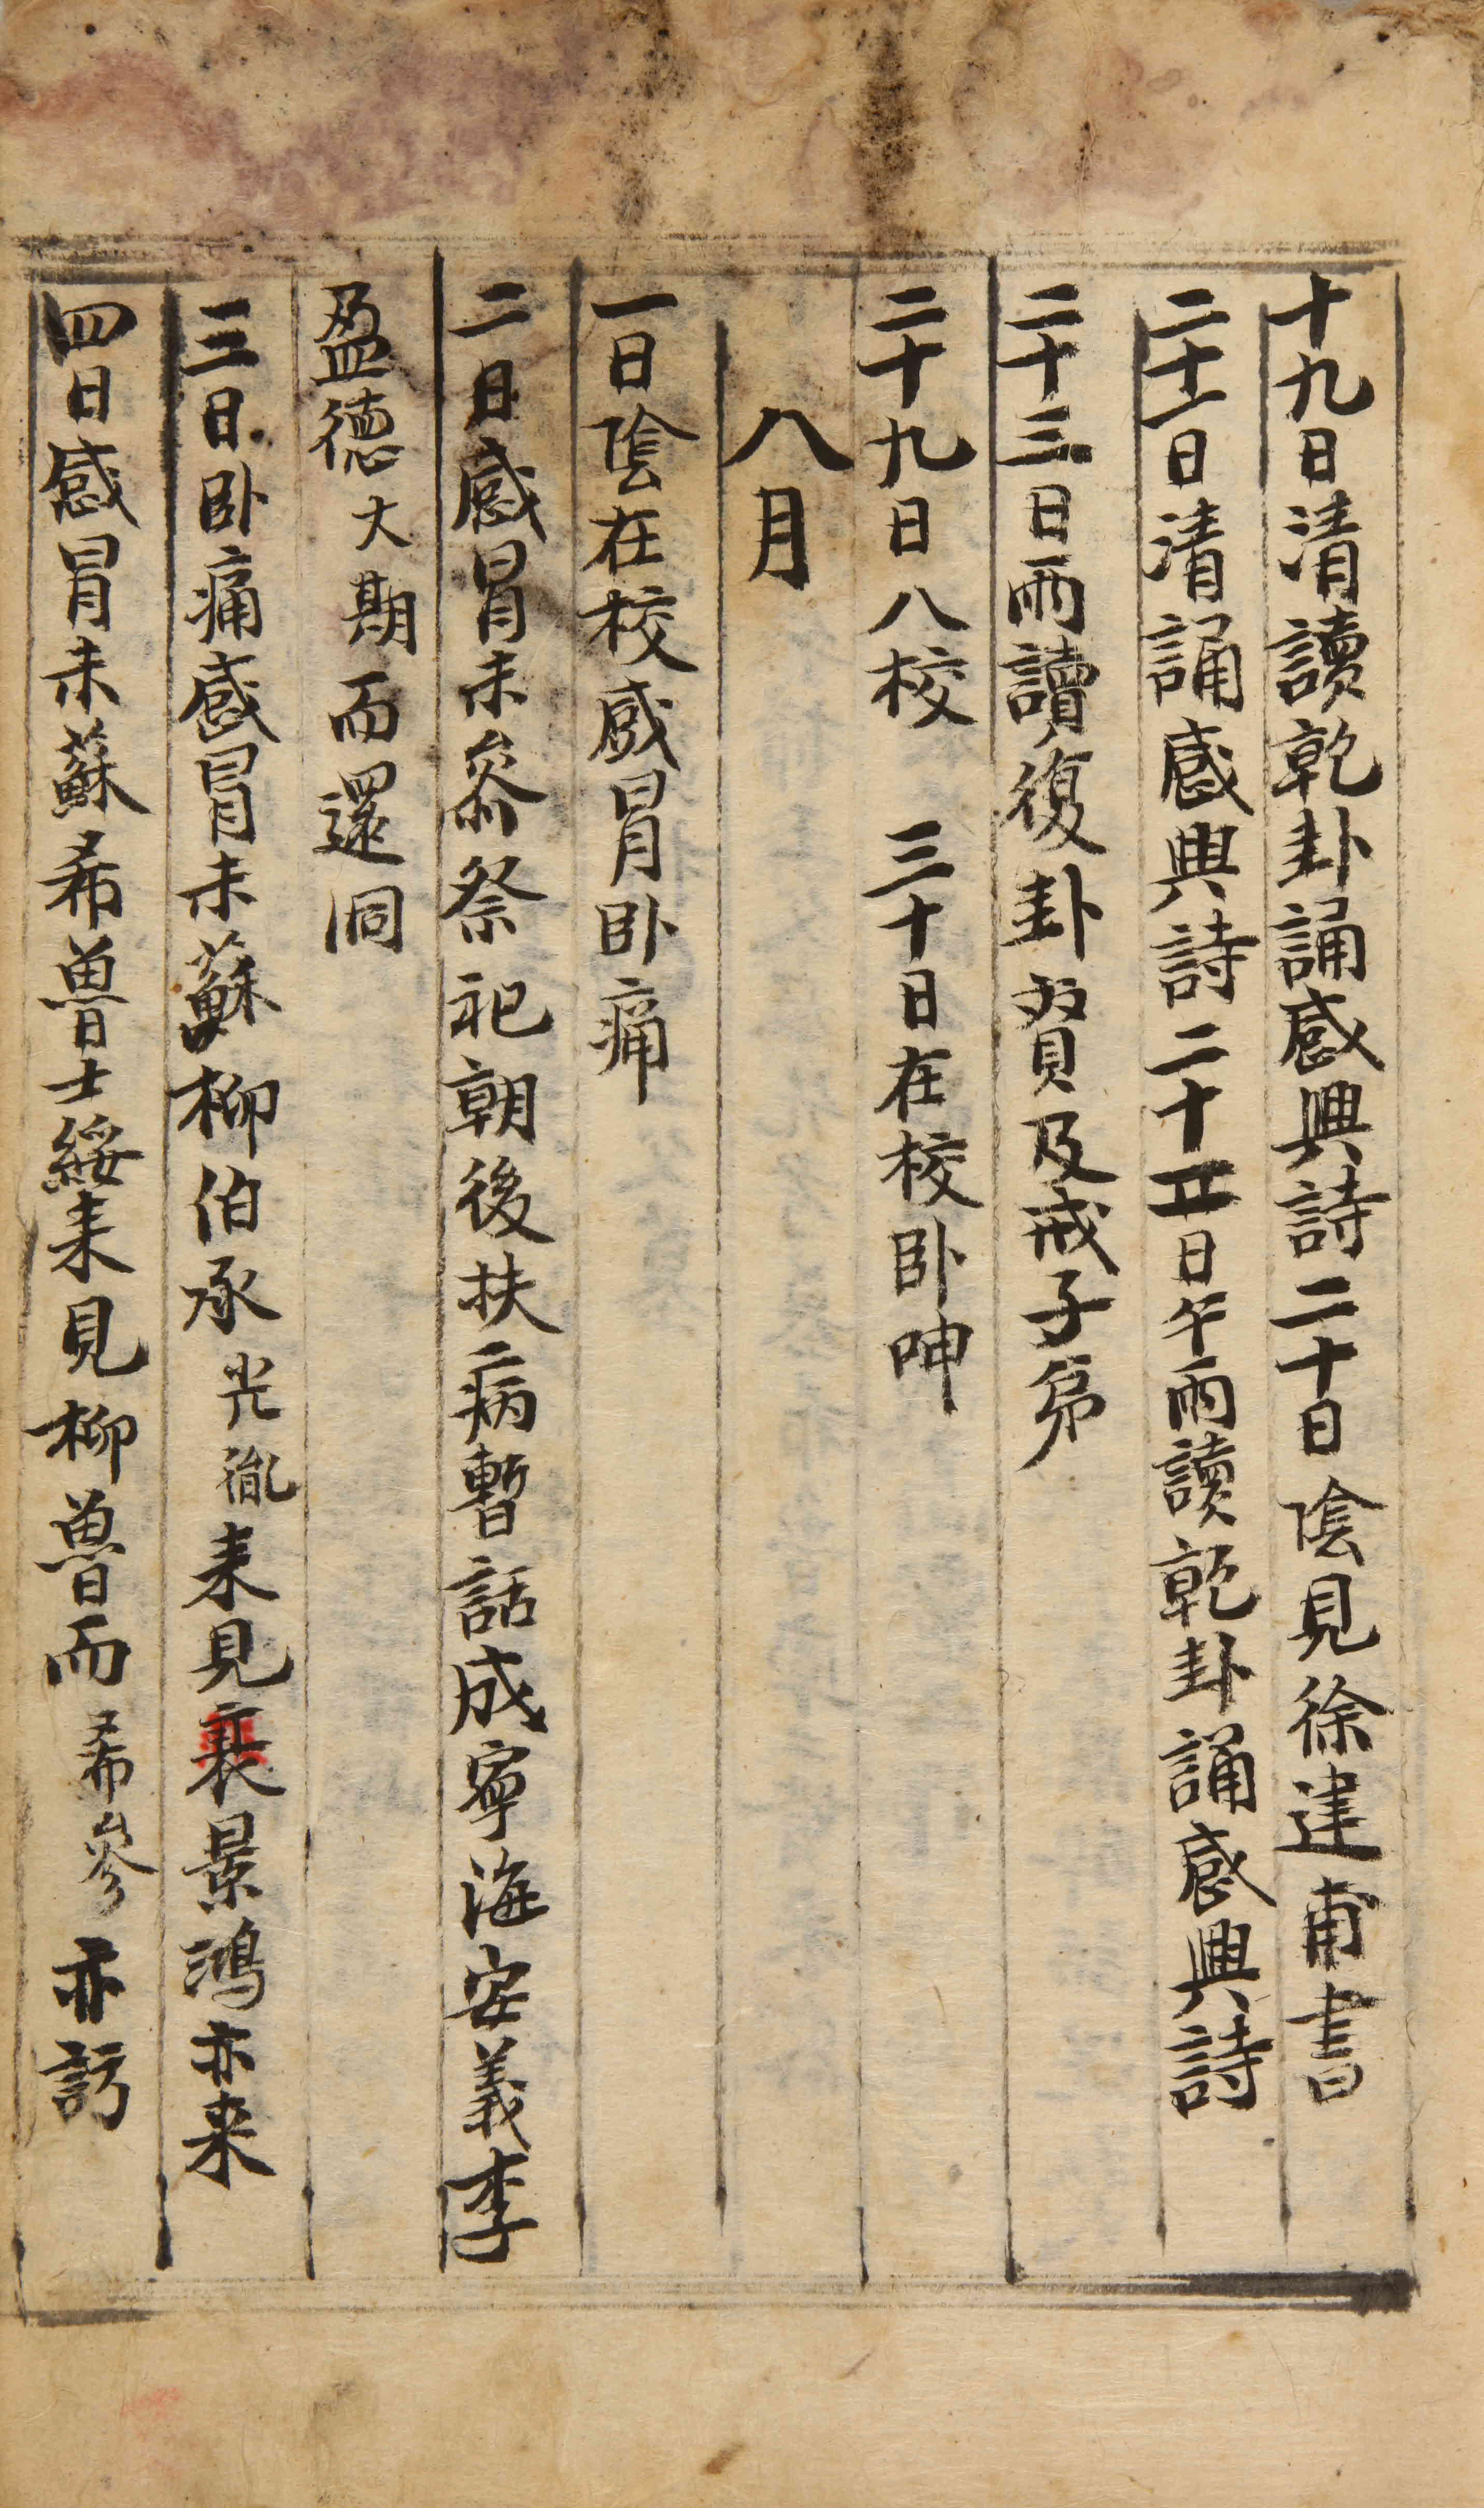 十九日清讀乾卦誦感興詩二十日陰見徐建甫書
二十一日清誦感興詩二十五日午雨讀乾卦誦感興詩
二十三日雨讀復卦賁及戒子弟
二十九日入校 三十日在校卧呻
八月
一日陰在校感冒卧痛
二日感冒未參祭祀朝後扶病暫話成寧海安義李
盈德大期而還洞
三日卧痛感冒未蘇柳伯承光胤来見裵景鴻亦来
四日感冒未蘇希魯士綏来見柳魯而希參亦訪